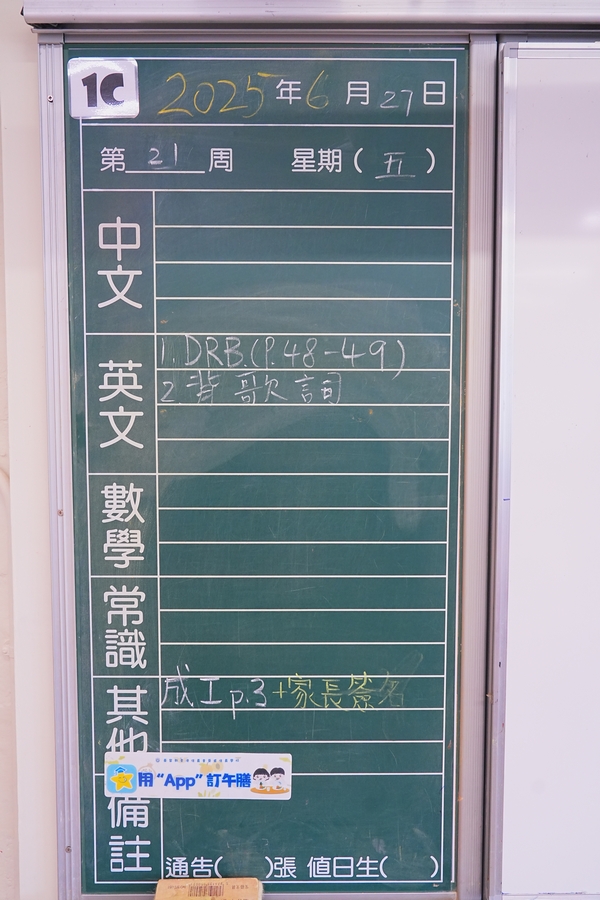 1C 2025年6月27日
第21周 星期(五)
中文
英文
1. DRB.(P.48-49)
2 背歌詞
數學
常識
其他
成工p.3+家長簽名
用“App”訂午膳
備註
通告( )張 值日生( )